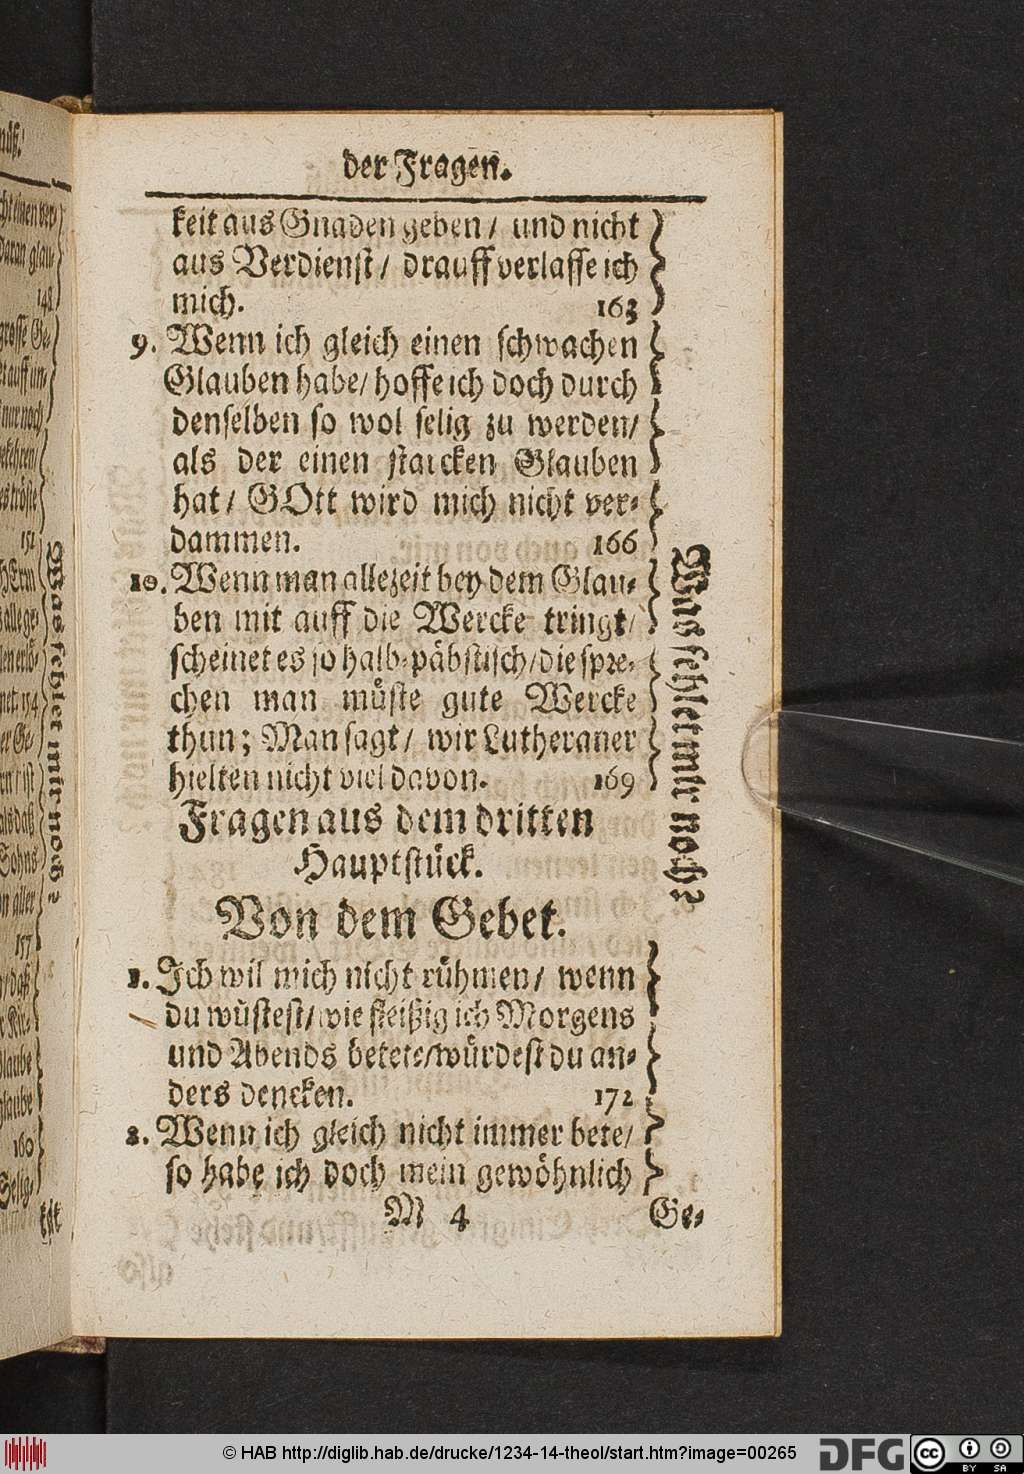 der Fragen.
keit aus Gnaden geben / und nicht
aus Verdienst / drauff verlasse ich
mich. 163
9. Wenn ich gleich einen schwachen
Glauben habe / hoffe ich doch durch
denselben so wol selig zu werden /
als der einen starcken Glauben
hat / GOtt wird mich nicht ver-
dammen. 166
10. Wenn man allezeit bey dem Glau-
ben mit auff die Wercke tringt /
scheinet es so halb-päbstisch / die spre-
chen man müste gute Wercke
thun; Man sagt / wir Lutheraner
hielten nicht viel davon. 169
Fragen aus dem dritten
Hauptstück.
Von dem Gebet.
1. Ich wil mich nicht rühmen / wenn
du wüstest / wie fleißig ich Morgens
und Abends betete / würdest du an-
ders dencken. 172
2. Wenn ich gleich nicht immer bete /
so habe ich doch mein gewöhnlich
M 4 Ge-
Was fehlet mir noch?
Was fehlet mir noch?
148
151
157
160
© HAB http://diglib.hab.de/drucke/1234-14-theol/start.htm?image=00265
DFG
cc BY SA